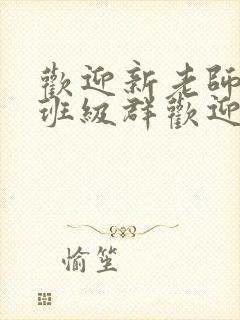 歡迎新老師
班級群歡迎
愉笙